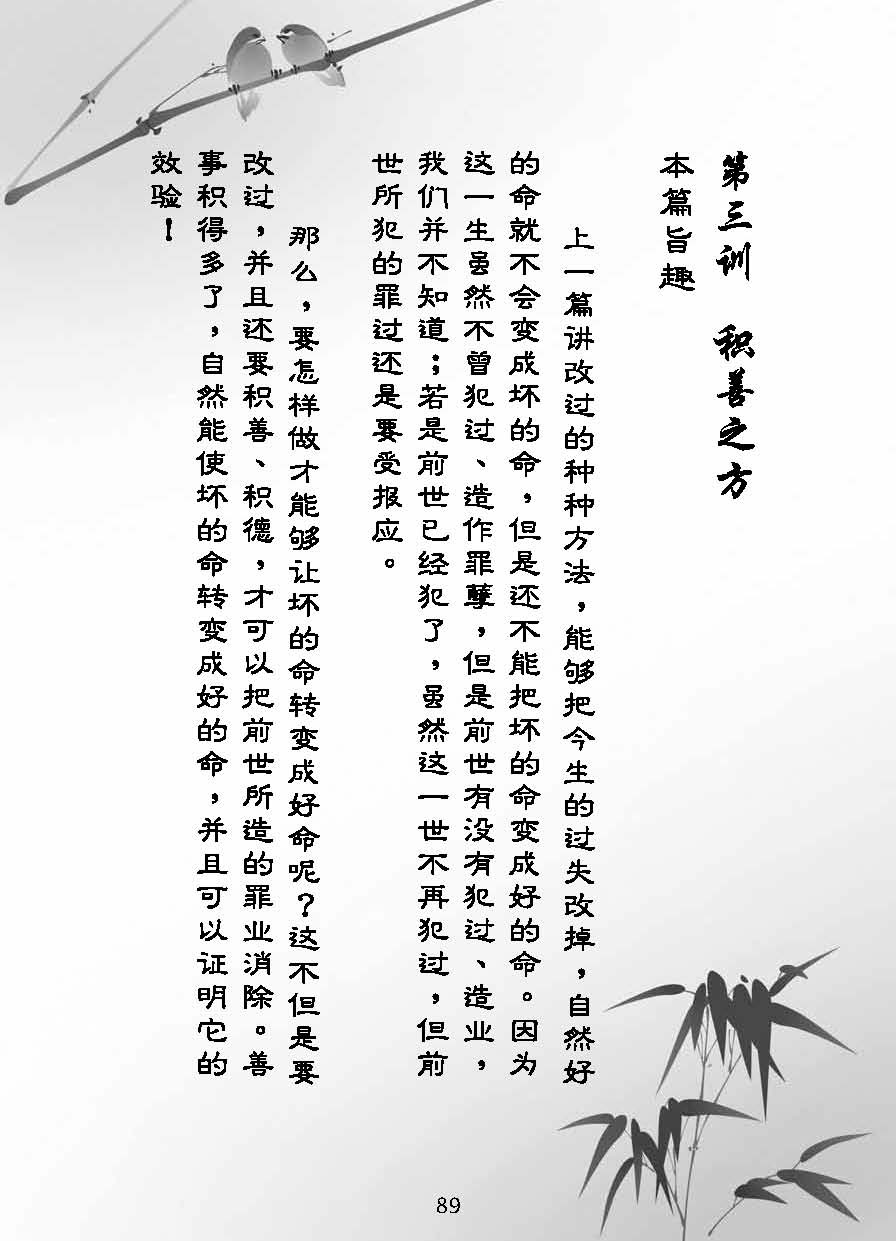 第三训　积善之方
本篇旨趣
上一篇讲改过的种种方法，能够把今生的过失改掉，自然好
的命就不会变成坏的命，但是还不能把坏的命变成好的命。因为
这一生虽然不曾犯过、造作罪孽，但是前世有没有犯过、造业，
我们并不知道；若是前世已经犯了，虽然这一世不再犯过，但前
世所犯的罪过还是要受报应。
那么，要怎样做才能够让坏的命转变成好命呢？这不但是要
改过，并且还要积善、积德，才可以把前世所造的罪业消除。善
事积得多了，自然能使坏的命转变成好的命，并且可以证明它的
效验！
89